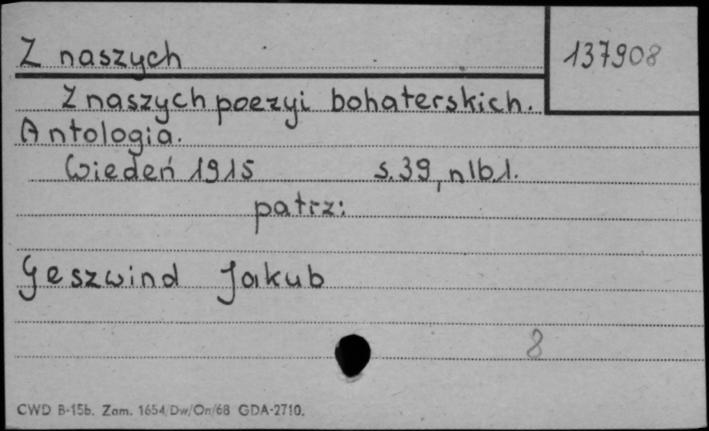 Z naszych
137908
Z naszych poezyi bohaterskich.
Antologia.
Wiedeń 1915 s.39, nlb.1.
patrz:
Geszwind Jakub
8
CWD B-15b. Zam. 1654/Dw/On/68 GDA-2710.